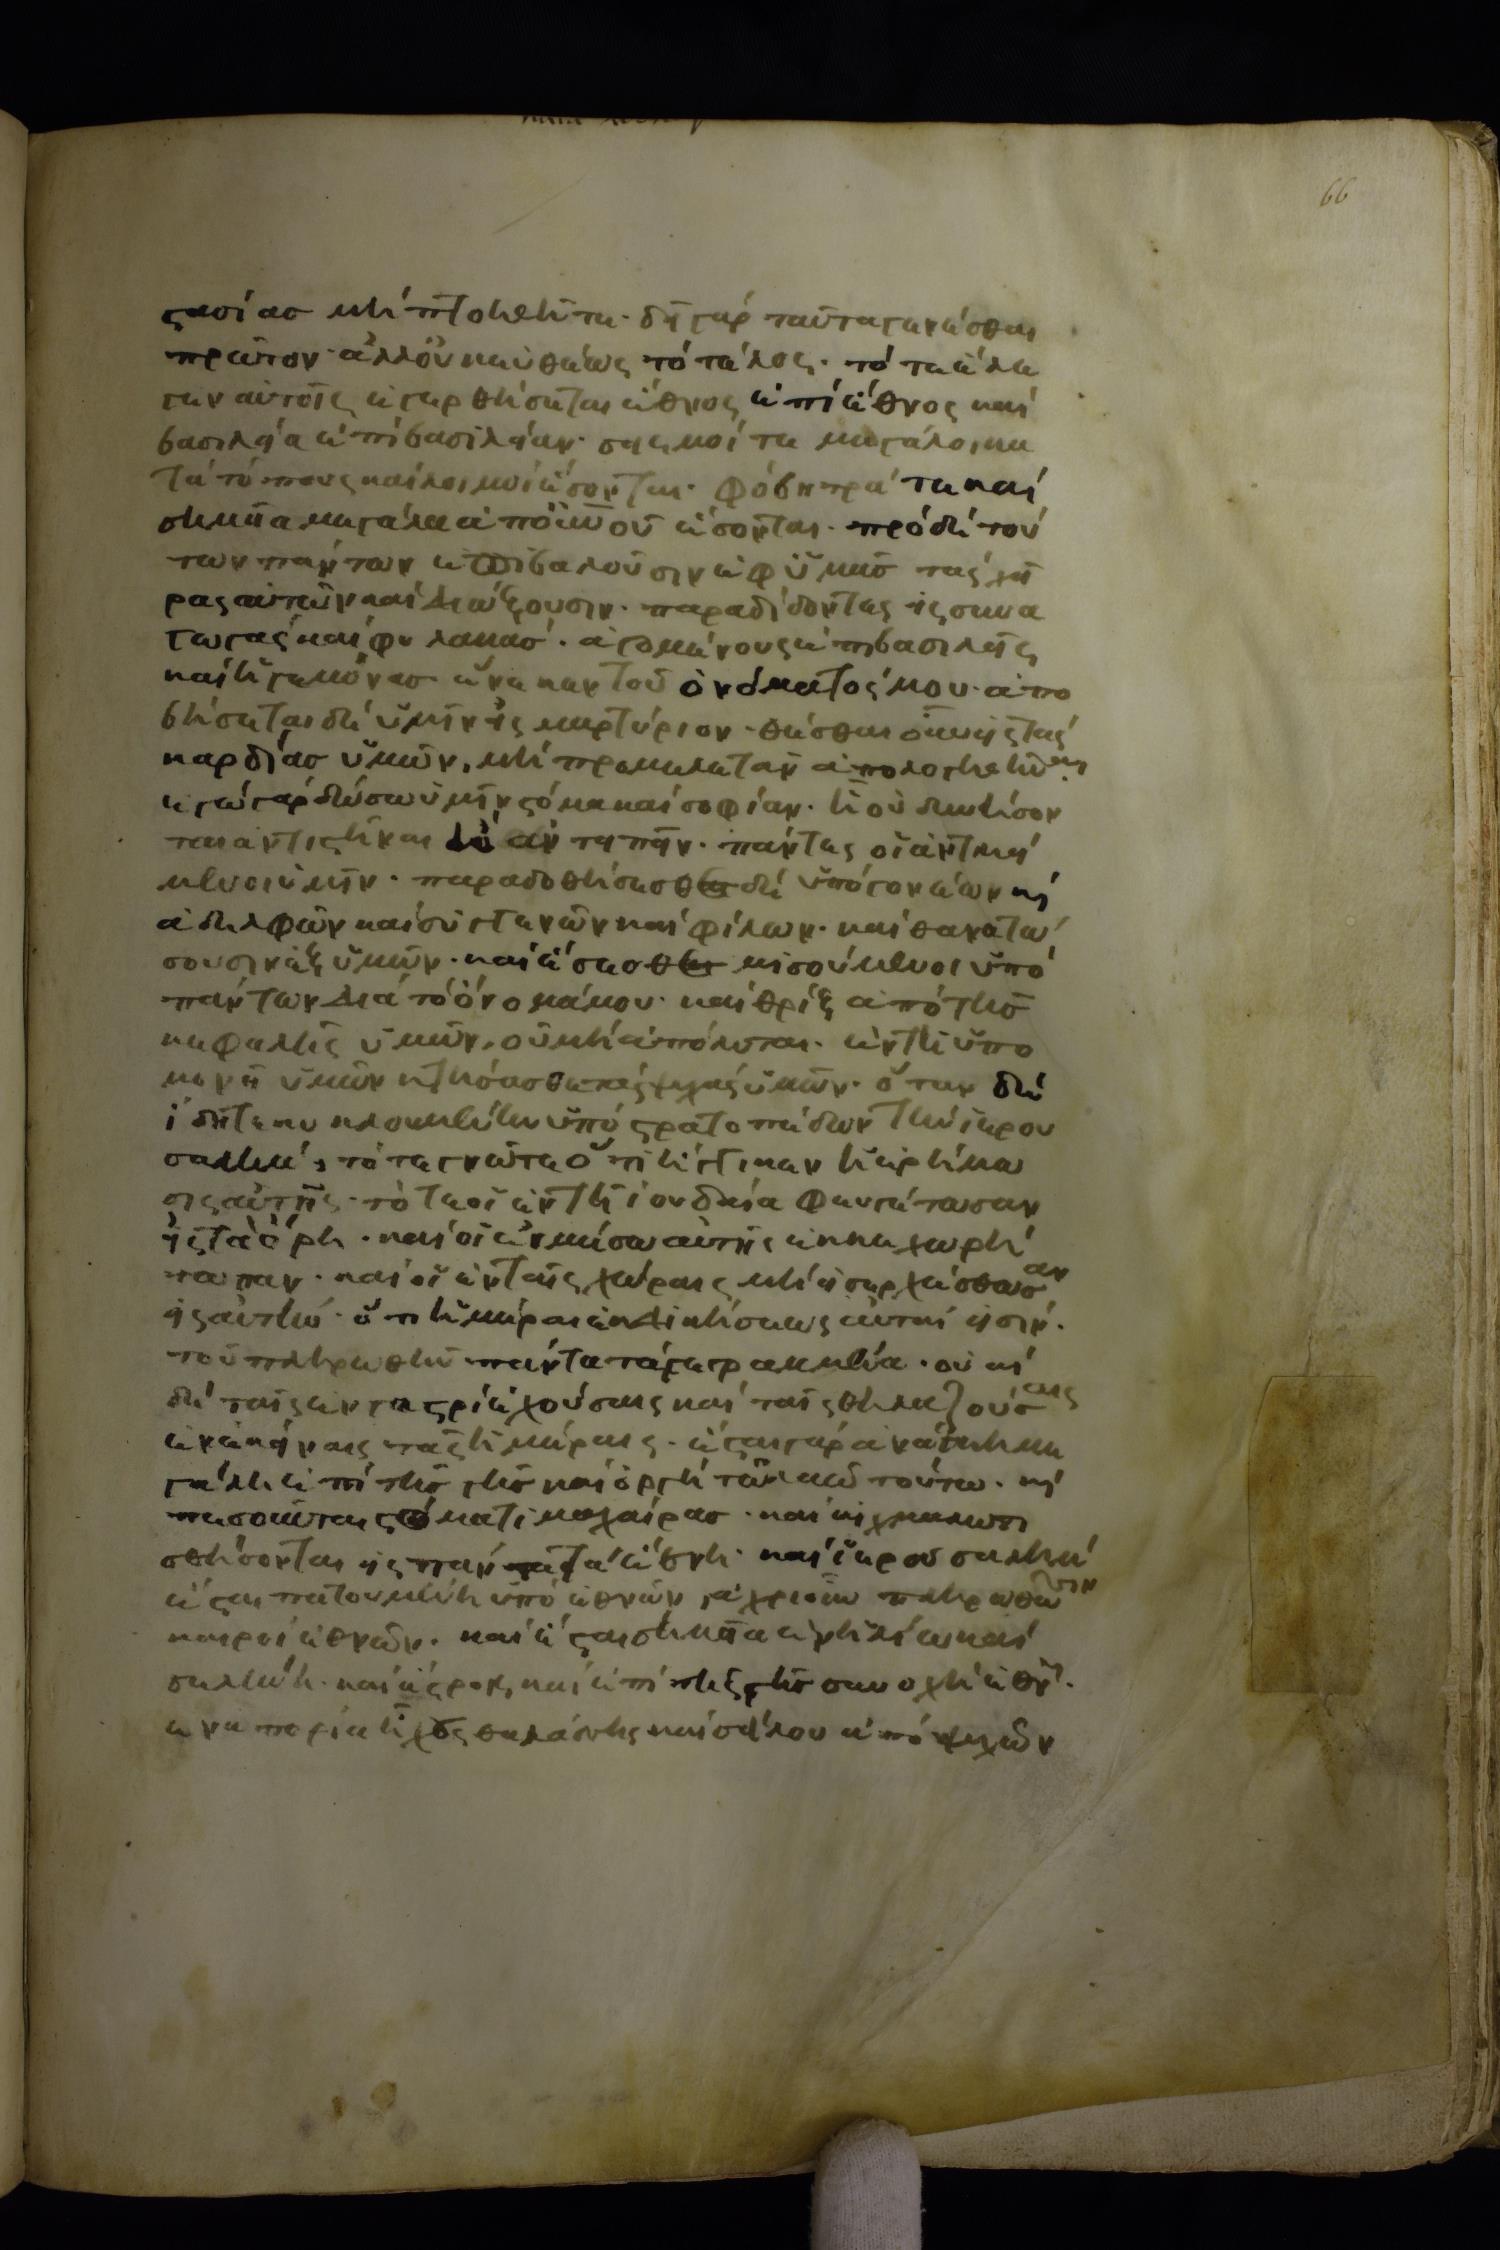 66
στασίας μὴ πτοηθῆτε· δεῖ γὰρ ταῦτα γενέσθαι
πρῶτον· ἀλλ' οὐκ εὐθέως τὸ τέλος· τότε ἔλε
γεν αὐτοῖς ἐγερθήσεται ἔθνος ἐπὶ ἔθνος καὶ
βασιλεία ἐπὶ βασιλείαν· σεισμοί τε μεγάλοι κα
τὰ τόπους καὶ λοιμοὶ ἔσονται· φόβητρά τε καὶ
σημεῖα μεγάλα ἀπὸ οὐνοῦ ἔσονται· πρὸ δὲ τού
των πάντων ἐπιβαλοῦσιν ἐφ' ὑμᾶς τὰς χεῖ
ρας αὐτῶν καὶ διώξουσιν· παραδίδοντες εἰς συνα
γωγὰς καὶ φυλακάς· ἀγομένους ἐπὶ βασιλεῖς
καὶ ἡγεμόνας ἕνεκεν τοῦ ὀνόματός μου· ἀπο
βήσεται δὲ ὑμῖν εἰς μαρτύριον· θέσθαι οὖν εἰς τὰς
καρδίας ὑμῶν, μὴ προμελετᾶν ἀπολογηθῆναι·
ἐγὼ γὰρ δώσω ὑμῖν στόμα καὶ σοφίαν· ᾗ οὐ δυνήσον
ται ἀντιστῆναι οὐδ' ἀντειπεῖν· πάντες οἱ ἀντικεί
μενοι ὑμῖν· παραδοθήσεσθαι δὲ ὑπὸ γονέων καὶ
ἀδελφῶν καὶ συγγενῶν καὶ φίλων· καὶ θανατώ
σουσιν ἐξ ὑμῶν· καὶ ἔσεσθαι μισούμενοι ὑπὸ
πάντων διὰ τὸ ὄνομά μου· καὶ θρὶξ ἀπὸ τῆς
κεφαλῆς ὑμῶν, οὐ μὴ ἀπόληται· ἐν τῇ ὑπο
μονῇ ὑμῶν κτήσασθε τὰς ψυχὰς ὑμῶν· ὅταν δὲ
ἴδητε κυκλουμένην ὑπὸ στρατοπέδων τὴν ἱερου
σαλήμ, τότε γνῶτε ὅτι ἤγγικεν ἡ ἐρήμω
σις αὐτῆς· τότε οἱ ἐν τῇ ἰουδαία φευγέτωσαν
εἰς τὰ ὄρη· καὶ οἱ ἐν μέσω αὐτῆς ἐκχωρεί
τωσαν· καὶ οἱ ἐν ταῖς χώραις μὴ εἰσερχέσθωσαν
εἰς αὐτήν· ὅτι ἡμέραι ἐκδικήσεως αὗταί εἰσιν·
τοῦ πληρωθῆναι πάντα τὰ γεγραμμένα· οὐαὶ
δὲ ταῖς ἐν γαστρὶ ἐχούσαις καὶ ταῖς θηλαζούσαις
ἐν ἐκείναις ταῖς ἡμέραις· ἔσται γὰρ ἀνάγκη με
γάλη ἐπὶ τῆς γῆς καὶ ὀργὴ τῷ λαῷ τούτω· καὶ
πεσοῦνται στόματι μαχαίρας· καὶ αἰχμαλωτι
σθήσονται εἰς πάντα τὰ ἔθνη· καὶ ἱερουσαλὴμ
ἔσται πατουμένη ὑπὸ ἐθνῶν, ἄχρις οὗ πληρωθῶσιν
καιροὶ ἐθνῶν· καὶ ἔσται σημεῖα ἐν ἡλίω καὶ
σελήνη· καὶ ἄστροις, καὶ ἐπὶ τῆς γῆς συνοχὴ ἐθνῶν·
ἐν ἀπορία ἤχους θαλάσσης καὶ σάλου ἀποψυχῶν